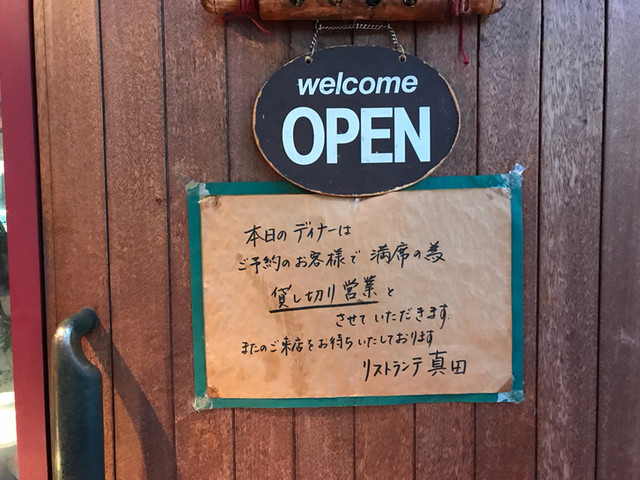 welcome
OPEN
本日のディナーは
ご予約のお客様で満席の為
貸し切り営業と
させていただきます
またのご来店をお待ちいたしております
リストランテ真田